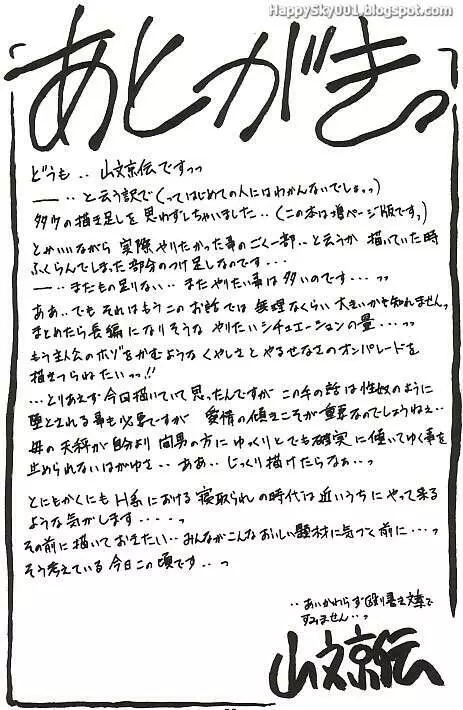 HappySky001.blogspot.com
あとがきっ
どうも‥山文京伝ですっっ
―‥と云う訳で(ってはじめての人にはわかんないでしょっっ)
多少の描き足しを思わずしちゃいました‥(この本は増ページ版ですっ)
とかいいながら 実際やりたかった事のごく一部‥と云うか 描いていた時
ふくらんでしまった部分のつけ足しなのです・・・
―‥まだもの足りない‥まだやりたい事は多いのです・・・っっ
ああ‥でもそれはもうこのお話では 無理なくらい大きいかも知れませんっ
まとめたら長編になりそうな やりたいシチュエーションの量・・・・っっ
もう主人公のホゾをかむような くやしさと やるせなさのオンパレードを
描きつらねたいっっ!!
・・・とりあえず今回描いていて思ったんですが この手の話は性奴のように
堕とされる事も必要ですが 愛情の傾きこそが重要なのでしょうねぇ‥
母の天秤が自分より 間男の方に ゆっくりとでも確実に傾いてゆく事を
止められないはがゆさ‥ああ‥じっくり描けたらなぁ・・っ
とにもかくにも H系における寝取られの時代は近いうちにやって来る
ような気がします・・・・っ
その前に描いておきたい‥みんながこんなおいしい題材に気づく前に・・・っ
そう考えている今日この頃です‥っ
‥あいかわらず殴り書き文章で
すみません‥っ
山文京伝